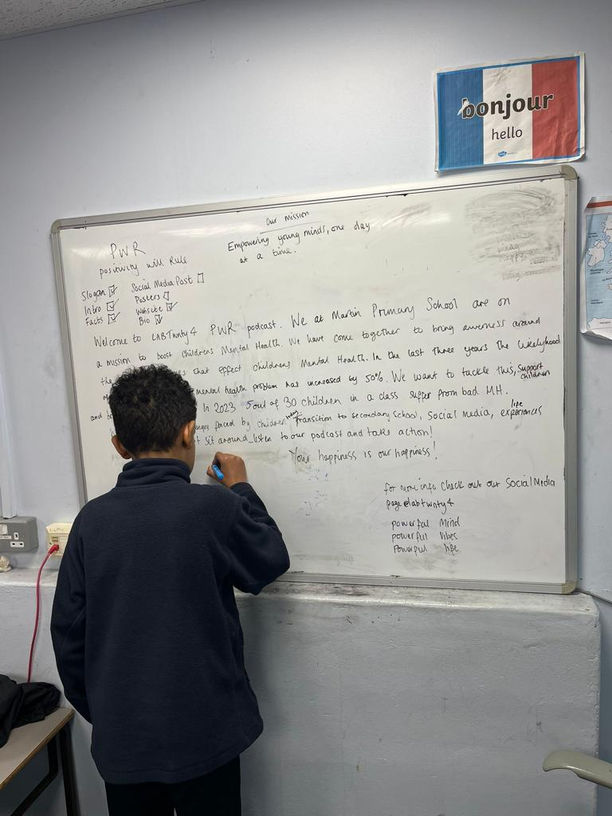 bonjour
hello
our mission
Empowering young minds, one day
at a time.
PWR
positivity will Rule
Slogan ☑ Social Media Post ☐
Intro ☑ Posters ☐
Facts ☑ Website ☑
Bio ☑
Welcome to LABTwnty4 PWR podcast. We at Martin Primary School are on
a mission to bost childrens Mental Health. We have come together to bring awerness around
the that effect childrens Mental Health. In the last three years the likelyhood
mental health problem has increased by 50%. We want to tackle this, support children
and In 2023 5 out of 30 children in a class suffer from bad MH.
faced by children transition to secondary School, Social media, life experiences
sit around, listen to our podcast and take action!
Your happiness is our happiness!
for more info Check out our Social Media
page @labtwnty4
powerful Mind
powerful vibes
Powerful life